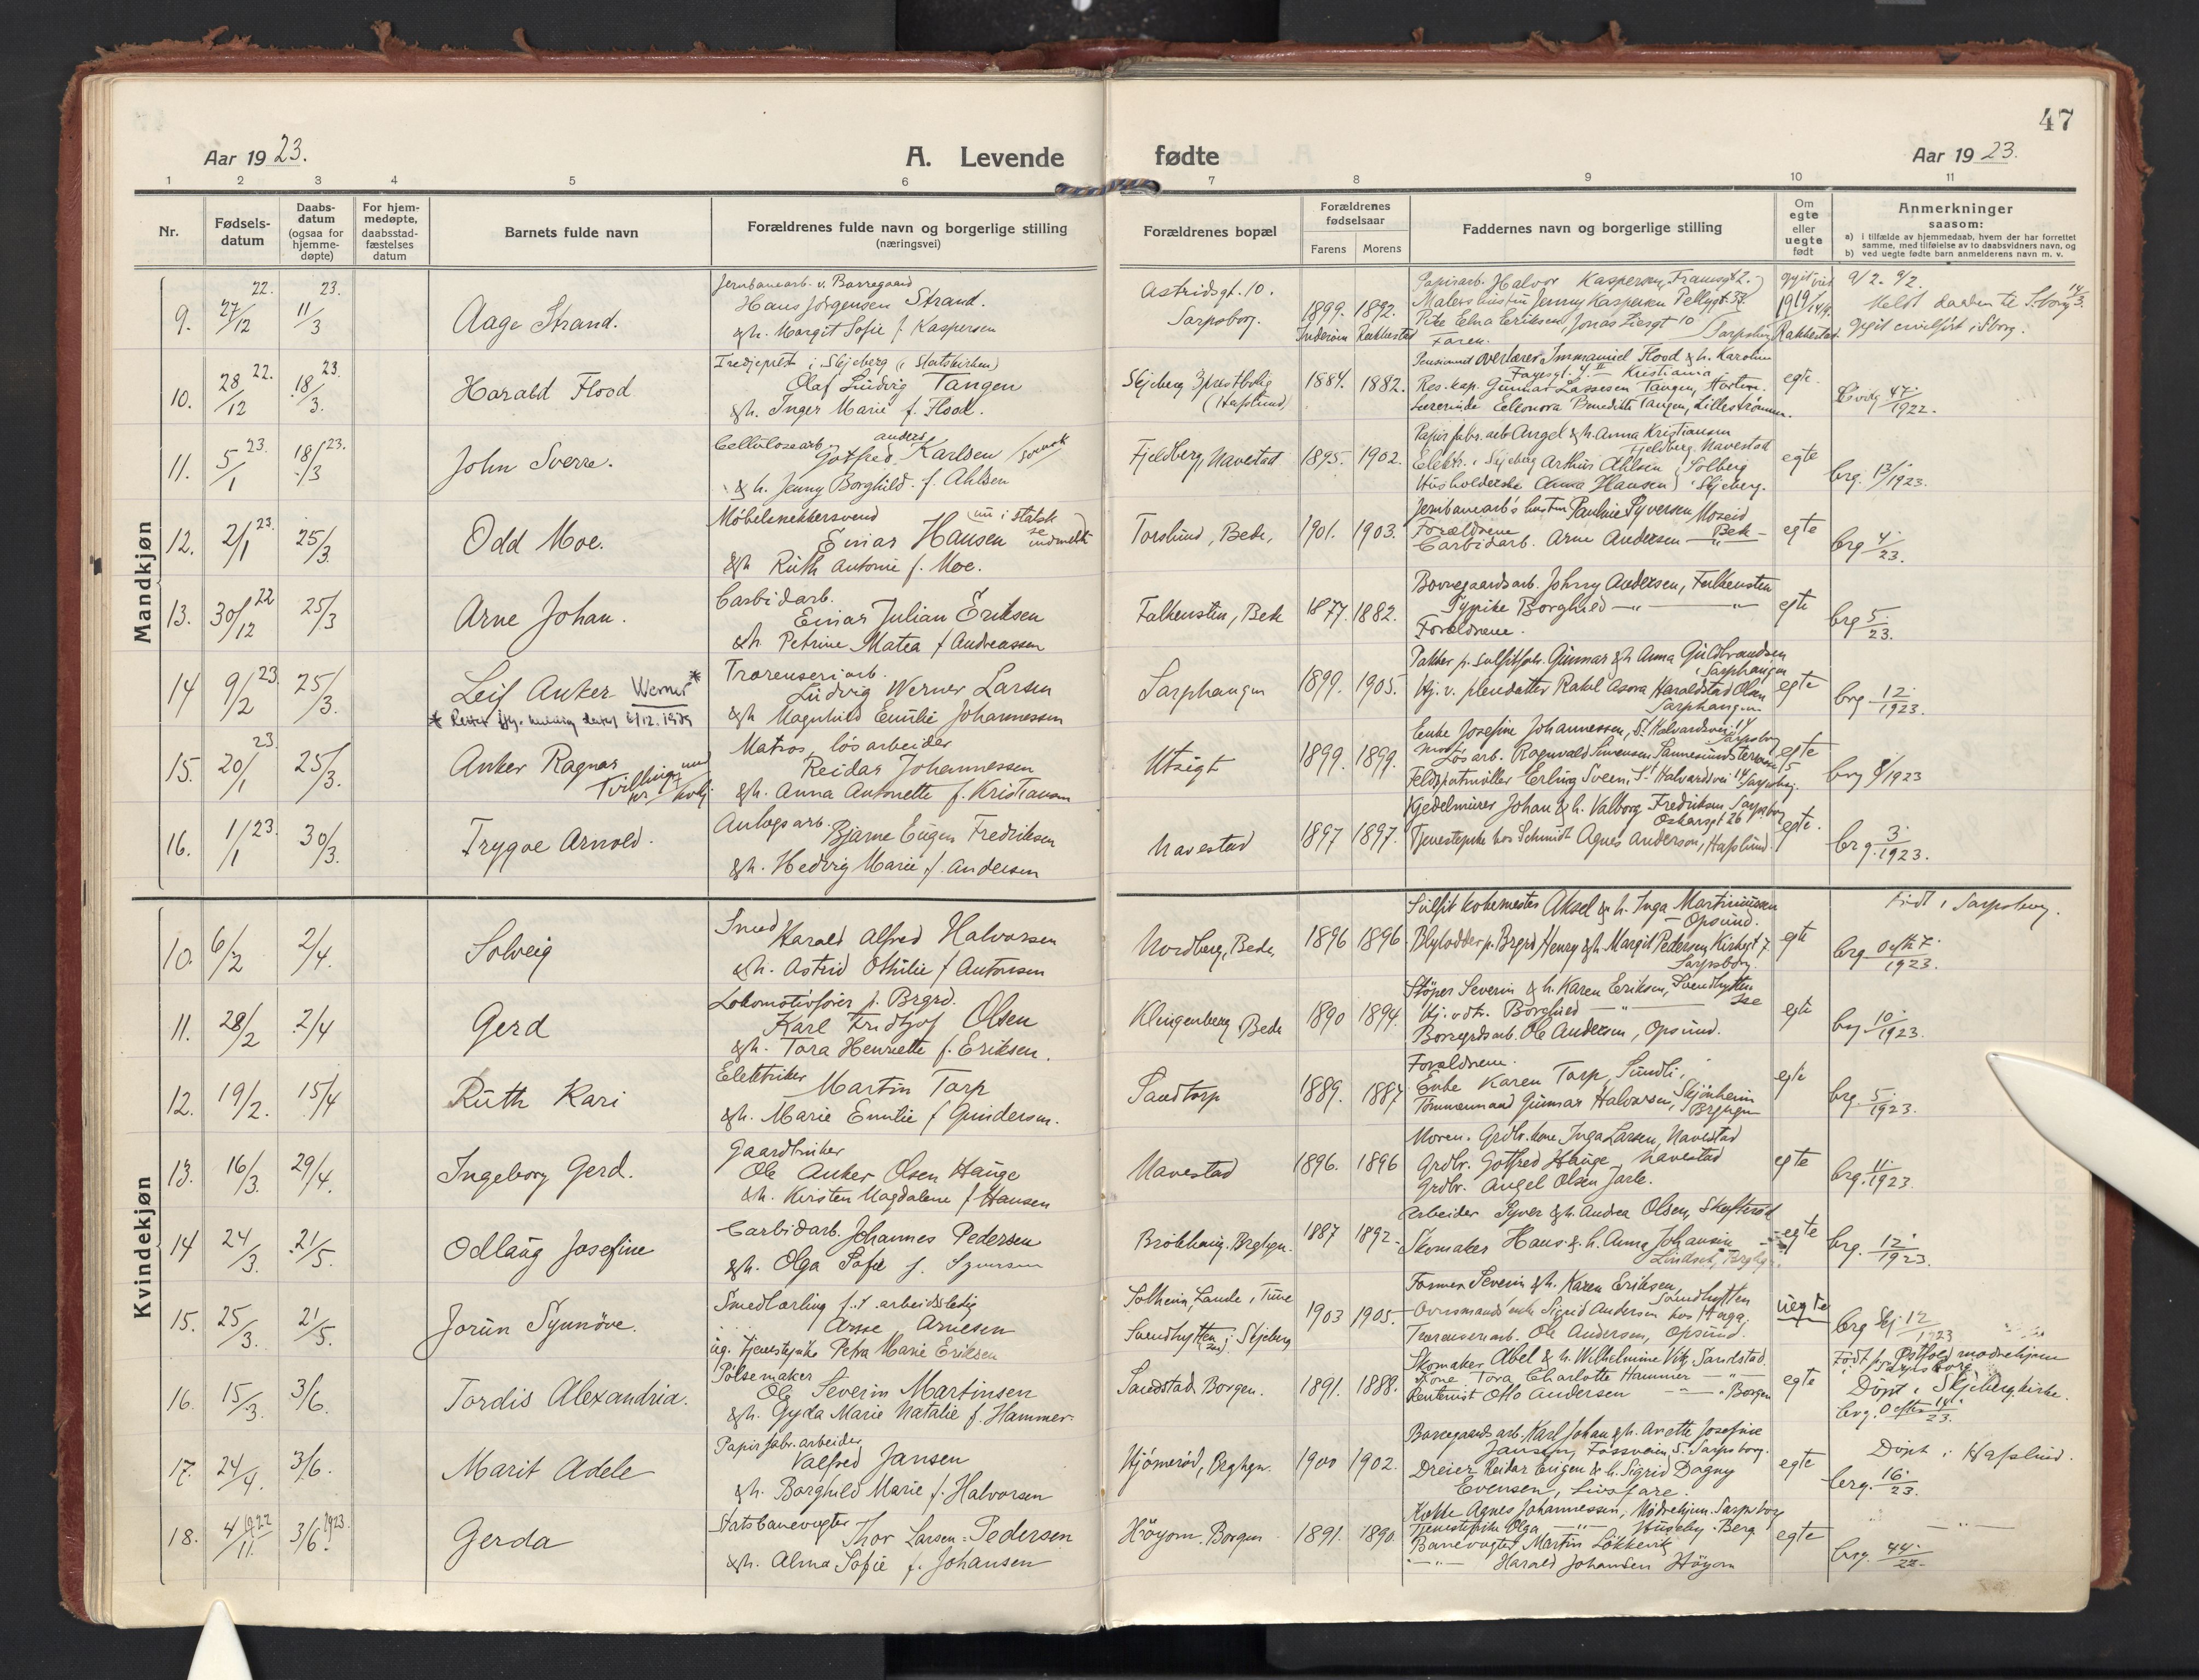 47
Aar 1923.
A. Levende fødte
Aar 1923.
1 2 3 4 5 6 7 8 9 10 11
Nr.
Fødsels-
datum
Daabs-
datum
(ogsaa for
hjemme-
døpte)
For hjem-
medøpte,
daabsstad-
fæstelses
datum
Barnets fulde navn
Forældrenes fulde navn og borgerlige stilling
(næringsvei)
Forældrenes bopæl
Forældrenes
fødselsaar
Farens Morens
Faddernes navn og borgerlige stilling
Om
egte
eller
uegte
født
Anmerkninger
saasom:
a) i tilfælde av hjemmedaab, hvem der har forrettet
samme, med tilføielse av to daabsvidners navn, og
b) ved uegte fødte barn anmelderens navn m. v.
Mandkjøn
9. 27/12 22. 11/3 23. Aage Strand.
Jernbanearb. v. Borregaard
Hans Jörgensen Strand.
& h. Margit Sofie f. Kaspersen
Astridsgt. 10.
Sarpsborg.
1899. 1892.
Rakkestad
Papirarb. Halvor Kaspersen,
Malers hustru Jenny Kaspersen
Pike Elna Eriksen, Jonas Liesgt 10
Faren.
Sarpsborg
1919
Rakkestad.
9/2. 9/2.
10. 28/12 22. 18/3. 23. Harald Flood
Tredjeprest i Skjeberg (i Statskirken)
Olaf Ludvig Tangen
& h. Inger Marie f. Flood.
Skjeberg 3prestbolig
(Hafslund)
1884. 1882.
Pensioneret overlærer Immanuel Flood & h. Karoline
Kristiania.
Res. kap. Gunnar Lassesen Tangen, Horten.
Lærerinde Eleonora Benedikte Tangen, Lillestrømmen.
egte.
47/1922.
11. 5/1 23. 18/3 23. John Sverre.
Cellulosearb. anders
Gotfred Karlsen
& h. Jenny Borghild f. Ahlsen
Fjeldberg, Navestad
1895. 1902.
Papirfabr. arb Angel & h. Anna Kristiansen
Fjeldberg, Navestad
Elektr. i Skjeberg Arthur Ahlsen, Solberg
Husholderske Anna Hansen i Skjeberg.
egte
brg. 13/1923.
12. 2/1 23. 25/3. Odd Moe.
Møbelsnekkersvend
Einar Hansen
& h Ruth Antonie f. Moe.
nu i statsk
indmeldt
Torslund, Bede,
1901. 1903.
Jernbanearb's hustru Pauline Syversen Moseid
Forældrene
Carbidarb. Arne Andersen — Bede —
egte
brg 4/23.
13. 30/12 22 25/3 Arne Johan.
Carbidarb.
Einar Julian Eriksen
& h. Petrine Matea f Andreassen
Falkensten, Bede
1877. 1882.
Borregaardsarb. Johnny Andersen, Falkensten
Sypike Borghild —"— —"—
Forældrene.
egte
brg 5/23.
14 9/2 23. 25/3. Leif Anker Werner*
* 6/12. 1939
Trærenseriarb.
Ludvig Werner Larsen
& h Magnhild Emilie Johannessen
Sarphaugen
1899. 1905.
Pakker p. sulfitfabr. Gunnar & h Anna Guldbrandsen
Sarphaugen
Hj. v. pleiedatter Rakel Asora Haraldstad Olsen
Sarphaugen
egte
brg 12/1923.
15. 20/1 23. 25/3. Anker Ragnar
Tvilling
Matros, løsarbeider
Reidar Johannessen
& h. Anna Antonette f. Kristiansen
Utsigt
1899. 1899.
Enke Josefine Johannessen, St. Halvardsvei 14
Sarpsborg
Løsarb. Ragnvald Simensen, Sannesundsterrassen 5
Feldspatmöller Erling Sveen, St Halvardsvei 14 Sarpsborg.
egte
brg 8/1923
16. 1/1 23. 30/3. Trygve Arnold.
Anlægsarb.
Bjarne Eugen Fredriksen
& h. Hedvig Marie f. Andersen
Navestad
1897 1897.
Kjedelmurer Johan & h. Valborg Fredriksen Sarpsborg
Oskarsgt 26
Tjenestepike hos Schmidt Agnes Andersen, Hafslund.
egte.
brg. 3/1923.
Kvindekjøn
10. 6/2 2/4. Solveig
Smed
Harald Alfred Halvorsen
& h. Astrid Othilie f Antonsen
Nordberg, Bede,
1896 1896
Sulfitkokemester Aksel & h. Inga Martiniussen
— Opsund.
Blylodder p. Brgrd Henry & h. Margit Pedersen, Kirkegt 7.
Sarpsborg.
egte
Født i Sarpsborg.
brg. 7/1923.
11. 28/2 2/4 Gerd
Lokomotivfører p. Brgrd.
Karl Fridtjof Olsen
& h. Tora Henriette f. Eriksen.
Klingenberg, Bede
1890 1894.
Støper Severin & h. Karen Eriksen, Svendhytten
Hj. v. dtr. Borghild —"—
Borregrdsarb. Ole Andersen, Opsund.
egte
brg. 10/1923.
12. 19/2. 15/4 Ruth Kari
Elektriker
Martin Tarp
& h. Marie Emilie f Gundersen.
Sandtorp
1889. 1887
Forældrene.
Enke Karen Tarp, Sundli,
Tømmermand Gunnar Halvorsen, Skjönheim
Brghgn
egte
brg. 5/1923.
13. 16/3. 29/4. Ingeborg Gerd.
Gaardbruker
Ole Anker Olsen Hauge
& h. Kirsten Magdalene f Hansen
Navestad
1896. 1896
Moren. Grdbr. kone Inga Larsen, Navestad
Grdbr. Gotfred Hauge, Navestad
Grdbr. Angel Olsen Jarle.
egte
brg. 11/1923.
14 24/3. 21/5. Odlaug Josefine
Carbidarb. Johannes Pedersen
& h. Olga Sofie f. Syversen
Brghgn.
1887 1892.
Arbeider Syver & h. Andrea Olsen, Skafterød
Skomaker Hans & h. Anna Johansen
egte
brg. 12/1923.
15. 25/3. 21/5. Jorun Synnöve.
Smedlærling f. t. arbeidsledig
Arne Arnesen
ug. tjenestepike Petra Marie Eriksen
Solheim, Lande i Tune
Svendhytten i Skjeberg
1903 1905.
Former Severin & h. Karen Eriksen,
Svendhytten
Sigrid Andersen hos Hauge
Trærenseriarb. Ole Andersen, Opsund.
uegte
brg Skj. 12/1923
16. 15/3. 3/6. Tordis Alexandria.
Pølsemaker
Ole Severin Martinsen
& h. Gyda Marie Natalie f. Hammer.
Sandstad, Borgen.
1891. 1888.
Skomaker Abel & h. Wilhelmine Vik, Sandstad.
Kone Tora Charlotte Hammer —"—
Rentenist Otto Andersen —"— Borgen
egte
Født p. Østfold mødrehjem
i Sarpsborg
Døpt i Skjeberg kirke.
17. 24/4. 3/6. Marit Adele
Papirfabr. arbeider
Valfred Jansen
& h. Borghild Marie f. Halvorsen
Hjörnerød, Brghgn.
1900 1902.
Borregaardsarb. Karl Johan & h. Anette Josefine
Jansen, Fossveien 5. Sarpsborg.
Dreier Reidar Eugen & h. Sigrid Dagny
Evensen,
egte
Døpt i Hafslund.
brg. 16/23.
18. 4/11. 1922 3/6. 1923. Gerda
Statsbanevogter
Thor Larsen-Pedersen
& h. Alma Sofie f. Johansen
Höyom, Borgen
1891. 1890.
Kokke Agnes Johannessen, Mødrehjem. Sarpsborg
Tjenestepike Olga —"— Huseby. Berg
Banevogter Martin Løkkevik
—"— Harald Johansen Höyom
egte
—"—
brg. 44/22.